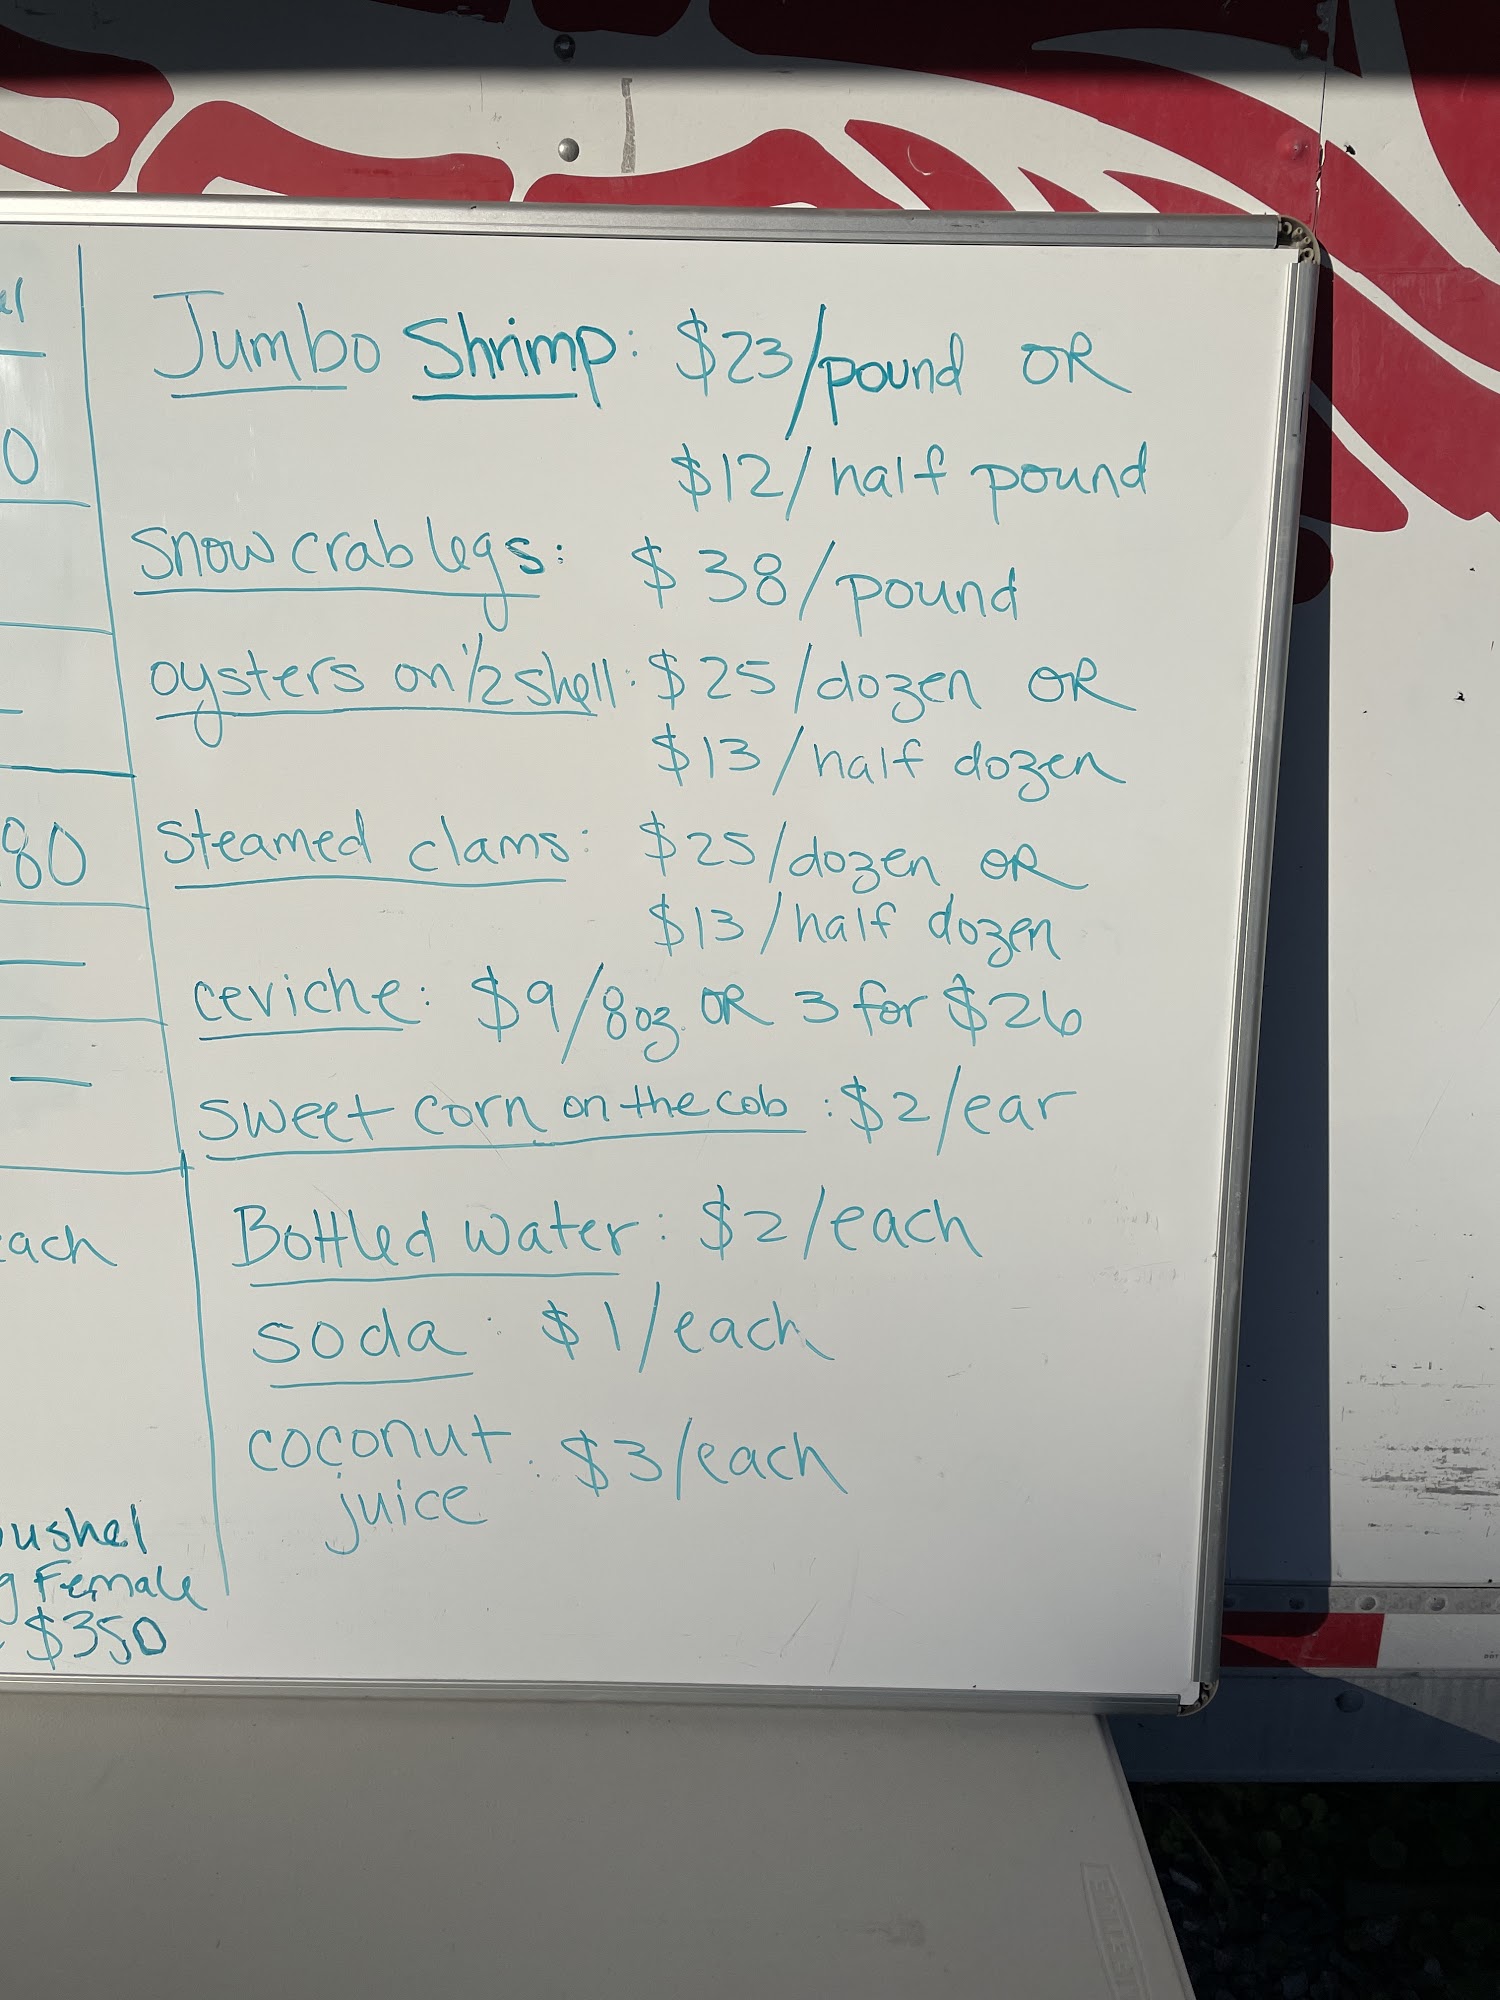 Jumbo Shrimp: $23/pound OR
$12/half pound
snow crab legs: $38/pound
oysters on 1/2 shell: $25/dozen OR
$13/half dozen
steamed clams: $25/dozen OR
$13/half dozen
ceviche: $9/8oz. OR 3 for $26
sweet corn on the cob: $2/ear
Bottled water: $2/each
soda: $1/each
coconut juice: $3/each
80
Female
$350